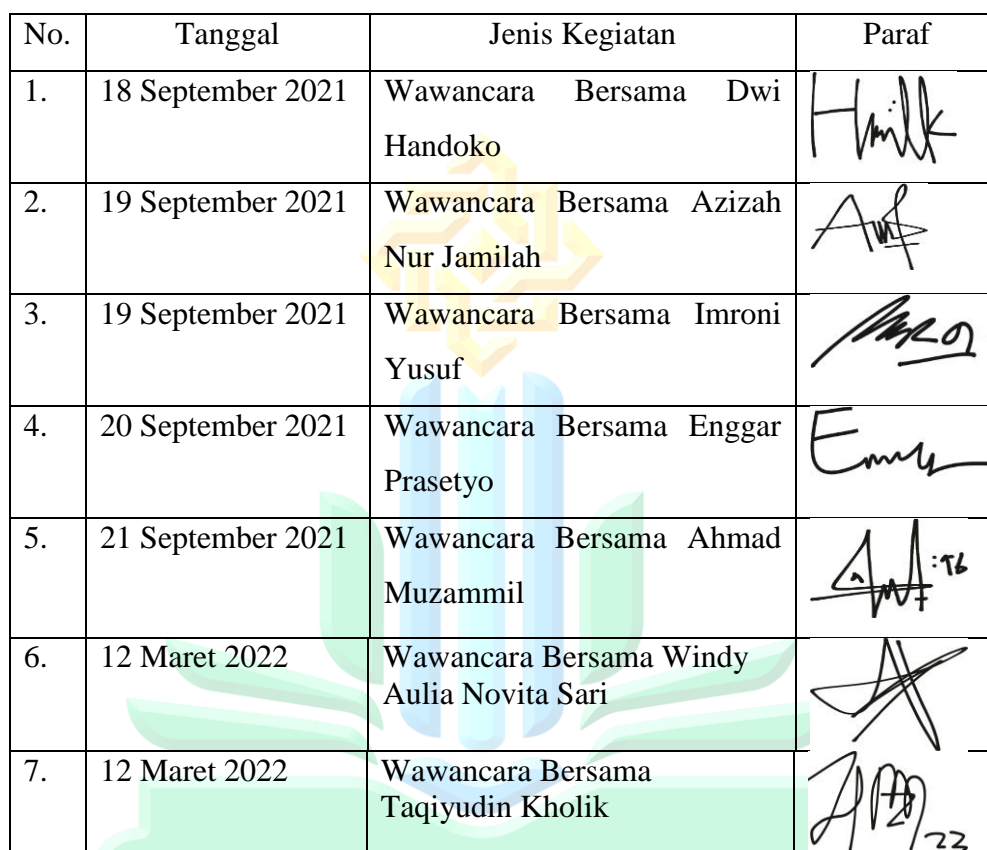 No. Tanggal Jenis Kegiatan Paraf
1. 18 September 2021 Wawancara Bersama Dwi
Handoko
2. 19 September 2021 Wawancara Bersama Azizah
Nur Jamilah
3. 19 September 2021 Wawancara Bersama Imroni
Yusuf
4. 20 September 2021 Wawancara Bersama Enggar
Prasetyo
5. 21 September 2021 Wawancara Bersama Ahmad
Muzammil
6. 12 Maret 2022 Wawancara Bersama Windy
Aulia Novita Sari
7. 12 Maret 2022 Wawancara Bersama
Taqiyudin Kholik
22